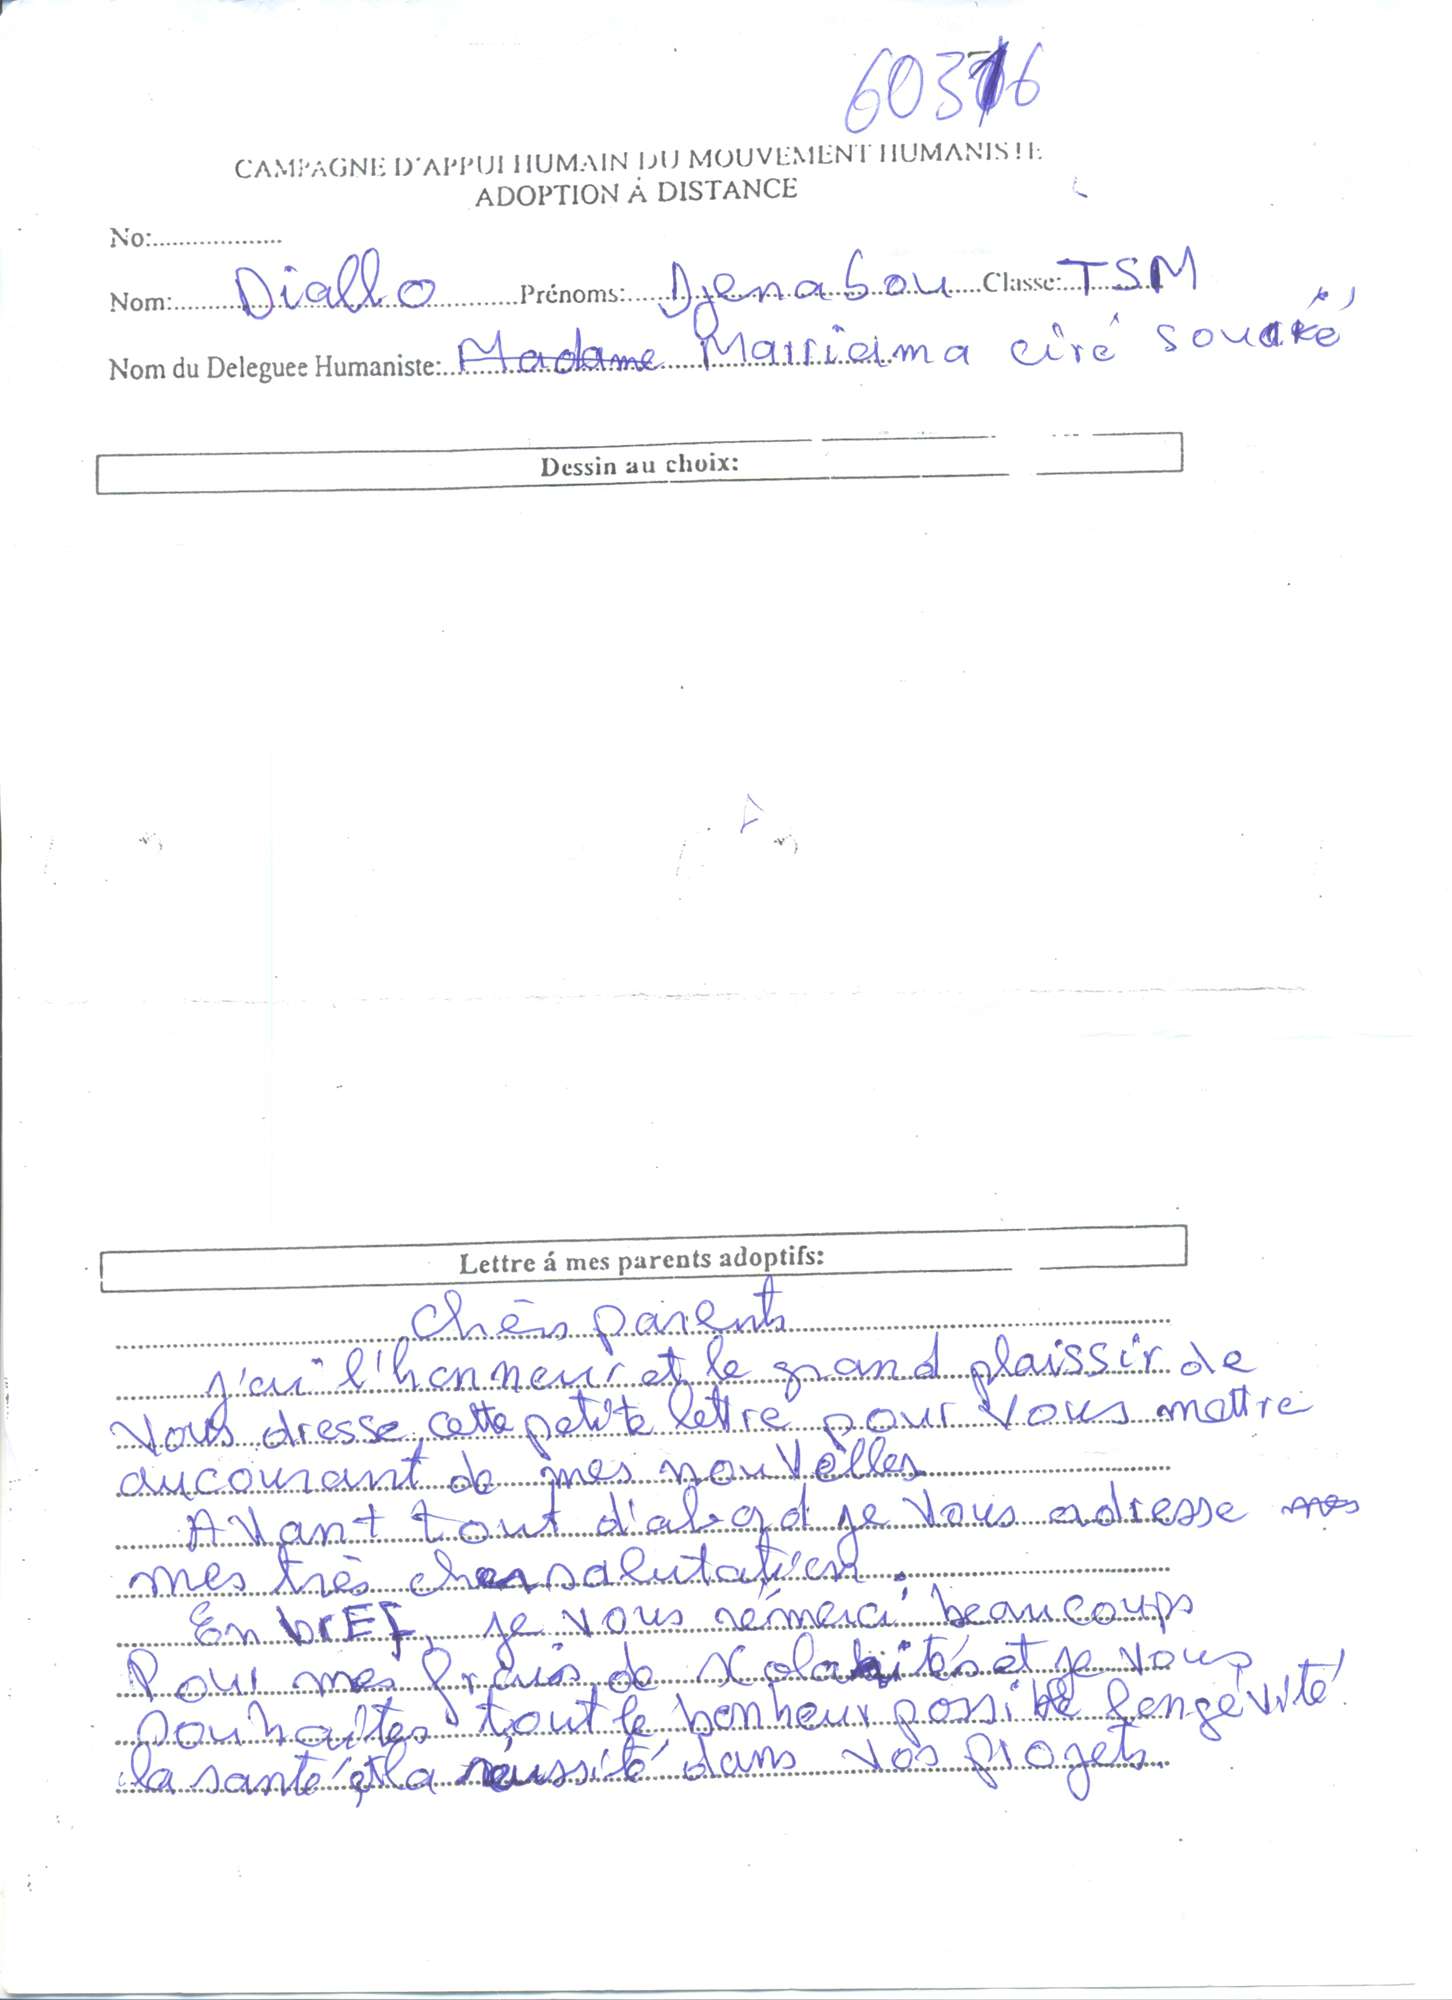 CAMPAGNE D'APPUI HUMAIN DU MOUVEMENT HUMANISTE
ADOPTION Á DISTANCE
No:...................
Nom: Diallo Prénoms: Djenabou Classe: TSM
Nom du Deleguee Humaniste: Madame ciré souaré
Dessin au choix:
Lettre á mes parents adoptifs:
Chèrs parents
j'ai l'honneur et le grand plaissir de
Vous dresse cette petite lettre pour Vous mettre
au courant de mes nouvèlles
AVant tout d'abord je Vous adresse
mes très chers salutation.
En brEf, je vous rémerci beaucoups
Pour mes frais de et je vous
souhaites tout le bonheur possible longévité
la santé et la réussité dans vos projets.